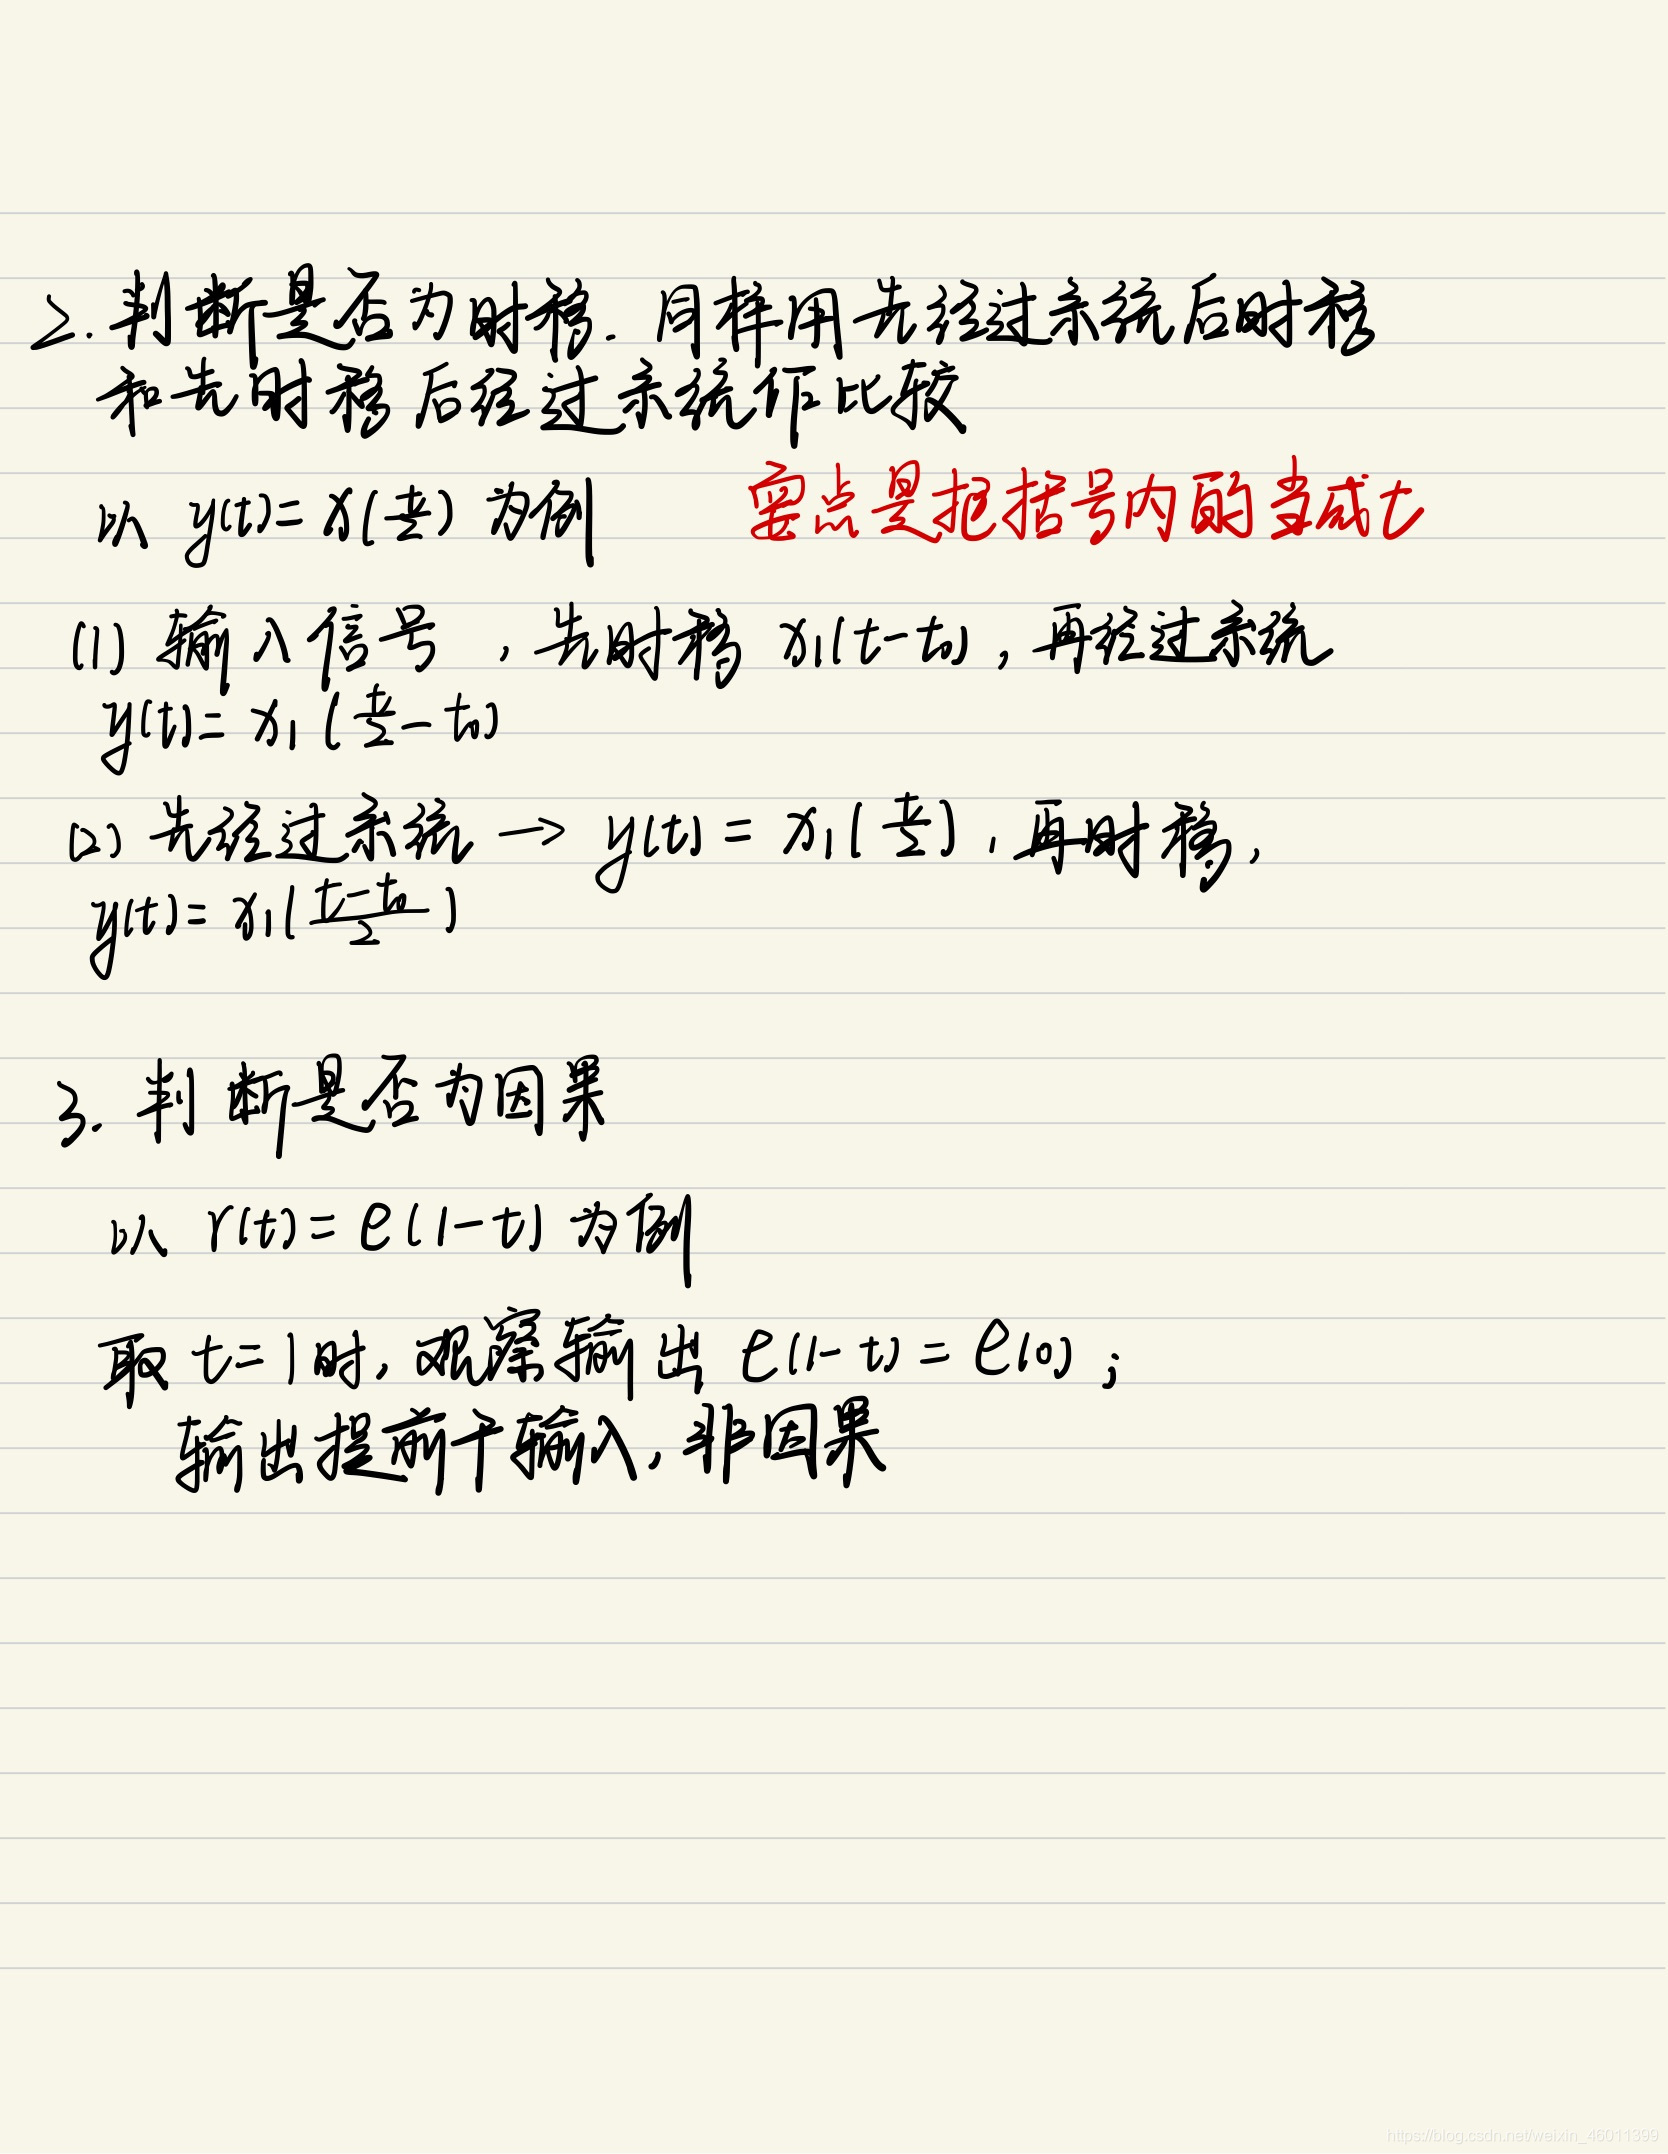 2. 判断是否为时移. 同样用先经过系统后时移
和先时移后经过系统作比较
以 y(t)=x(t/2) 为例 要点是把括号内的当成t
(1) 输入信号 ,先时移 x₁(t-t₀),再经过系统
y(t)= x₁(t/2-t₀)
(2) 先经过系统 → y(t) = x₁(t/2), 再时移,
y(t)= x₁((t-t₀)/2)
3. 判断是否为因果
以 r(t)= e(1-t) 为例
取 t=1时, 观察输出 e(1-t) = e(0) ;
输出提前于输入, 非因果
https://blog.csdn.net/weixin_46011399